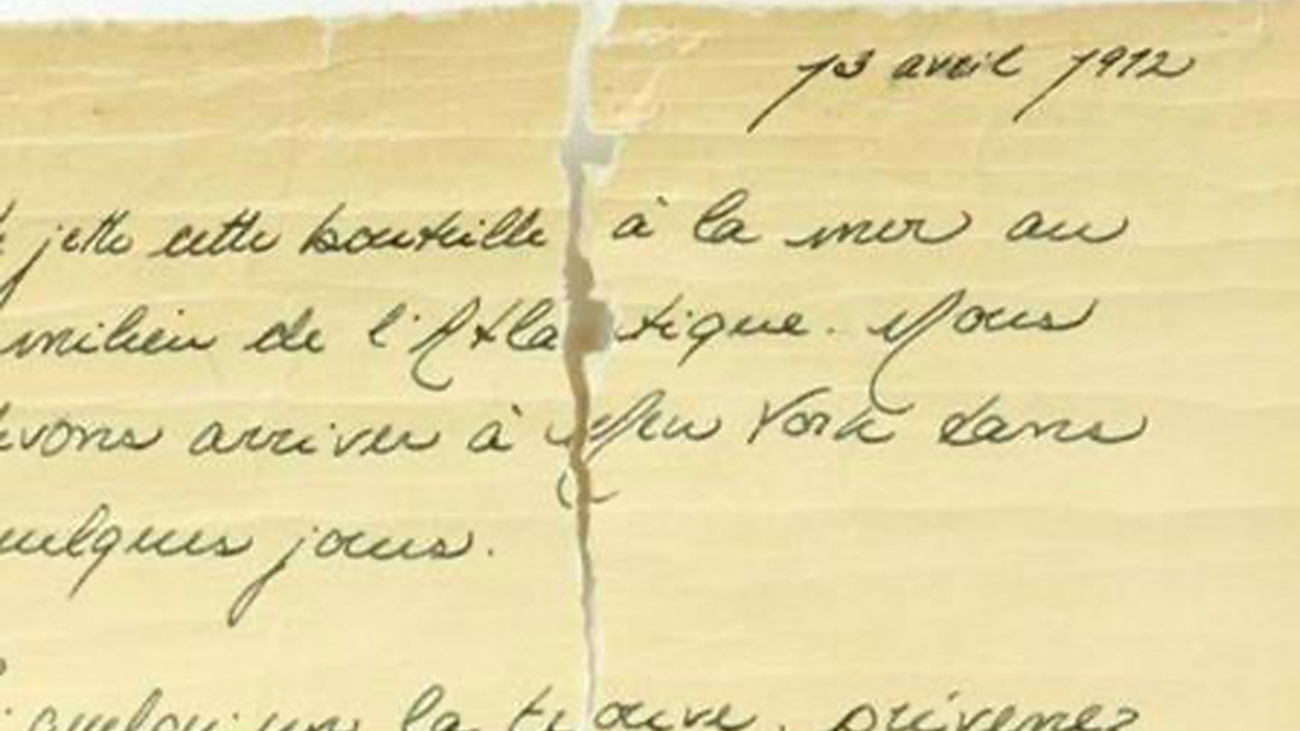 13 avril 1912
jette cette bouteille à la mer au
milieu de l'Atlantique. Nous
devons arriver à New York dans
quelques jours.
quelqu'un la trouve, prévenez